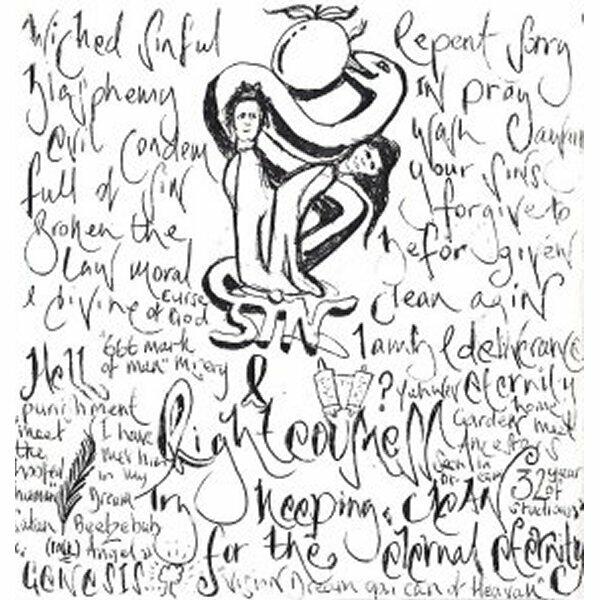 Wicked Sinful
Blasphemy
evil Condem
full of Sin
Broken the
Law moral
& divine
curse
of God
Repent Sorry
IN pray
Wash
your Sins
forgive to
be forgiven
Clean agin
SIN
&
Righteousness
Hell
"666 mark
of man" misery
punishment
meet
the
hoofed
human
Satan Beelzebub
I have
met him
in my
Dream
Angel
GENESIS
I am & deliverance
? Yahwey eternity
Garden home
meet
Ancestors
Seen in
Dream
32 year
of
studious
Try Keeping CLEAN
for the eternal eternity
"vision Dream you can of Heavah"